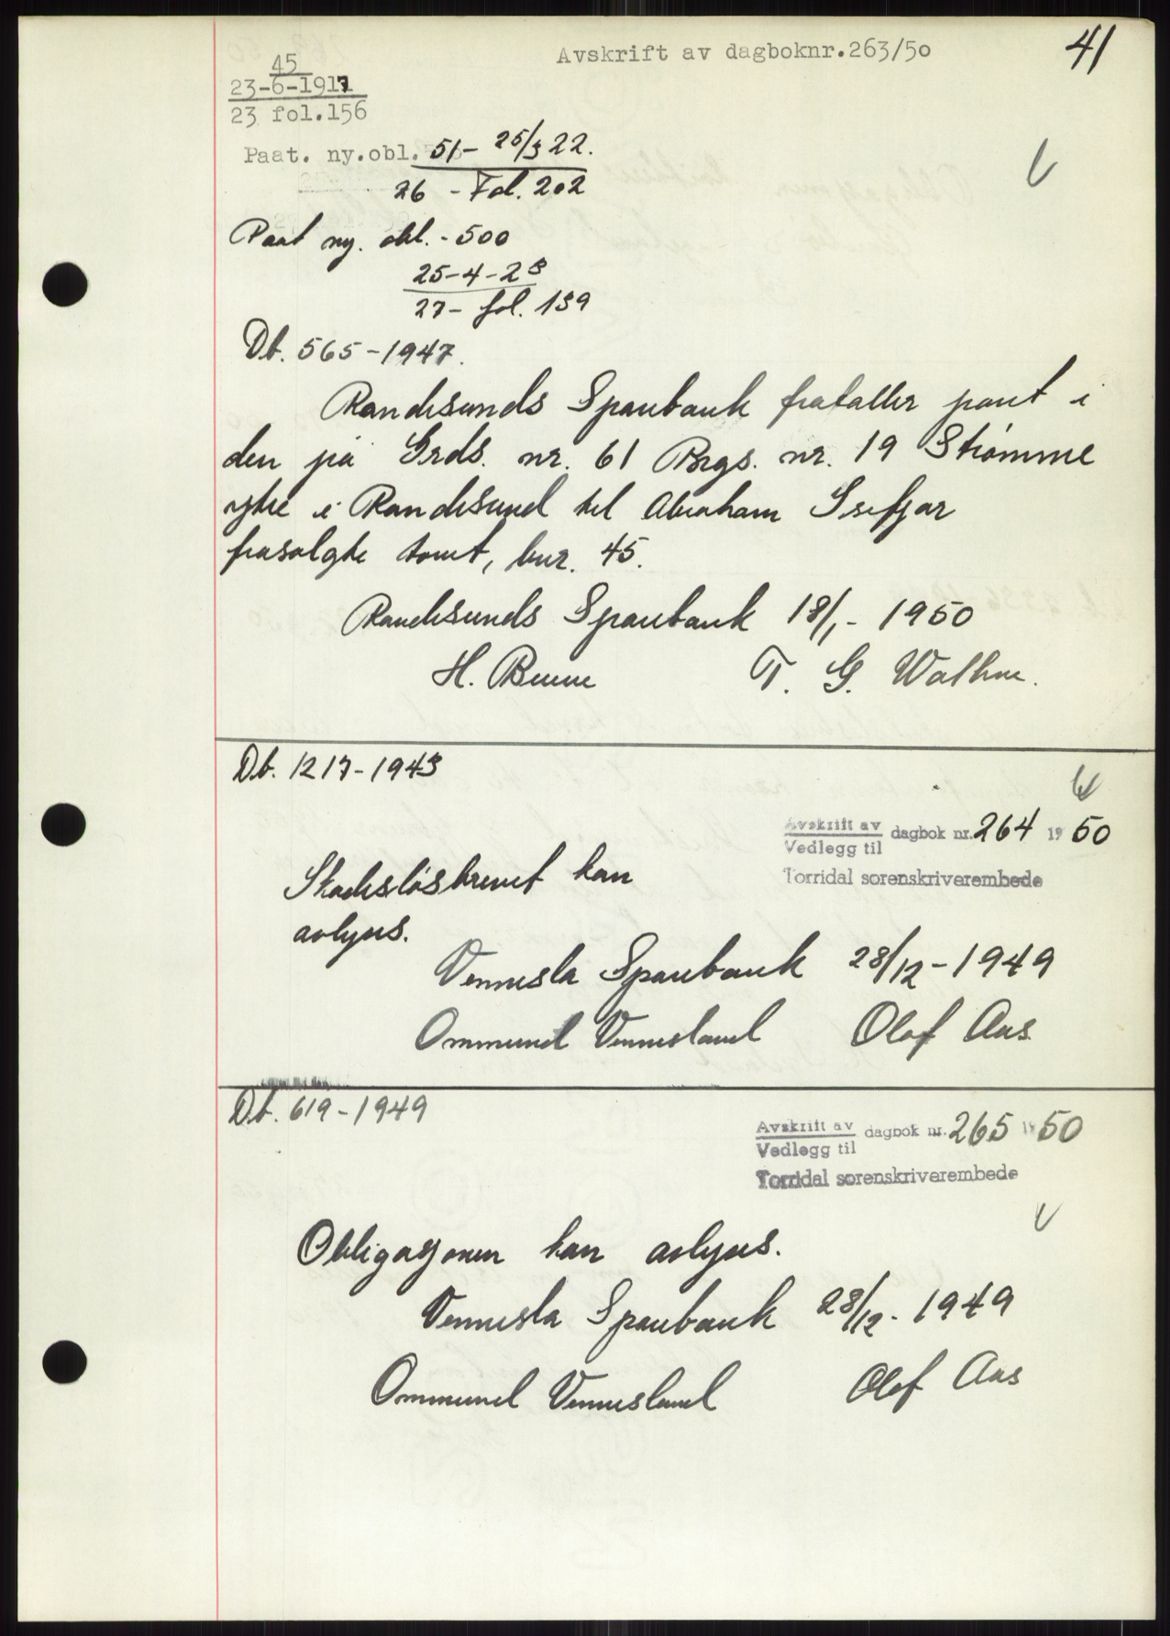 41
Avskrift av dagboknr.263/50
45
23-6-1917
23 fol.156
Paat. ny.obl. 51 - 25/3 22.
26 - Fol. 202
Paat ny. obl. - 500
25-4-23
27 - fol. 139
Db. 565-1947.
Randesunds Sparebank frafaller pant i
den på Grds. nr. 61 Brgs. nr. 19 Strømme
ytre i Randesund til Abraham Isefjær
frasolgte tomt, bnr. 45.
Randesunds Sparebank 18/1 - 1950
H. Beune T. G. Wathne.
Db. 1217-1943
Avskrift av
Vedlegg til
dagbok nr. 264 19 50
Torridal sorenskriverembede
Skadesløsbrevet kan
avlyses.
Vennesla Sparebank 28/12 - 1949
Ommund Vennesland Olaf Aas
Db. 619-1949
Avskrift av
Vedlegg til
dagbok nr. 265 19 50
Torridal sorenskriverembede
Obligasjonen kan avlyses.
Vennesla Sparebank 28/12 - 1949
Ommund Vennesland Olaf Aas